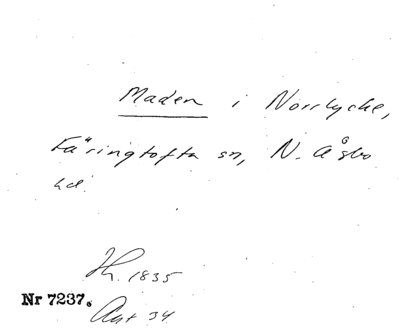 Maden i Norrlycke,
Färingtofta sn, N. Åsbo
hd.
Hh. 1835
Nr 7237.
Ant 34